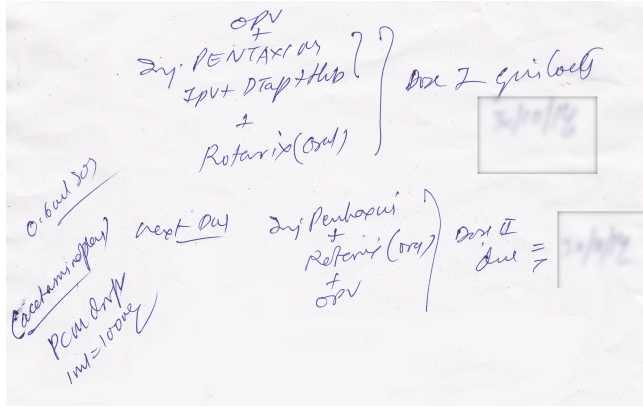 OPV
+
Inj. PENTAXIM
IPV + DTap + Hib
+
Rotarix (oral)
Dose I
0.6ml SOS
(acetaminophen)
PCM drop
1ml = 100mg
next Due
Inj Pentaxim
+
Rotarix (oral)
+
OPV
Dose II
due =